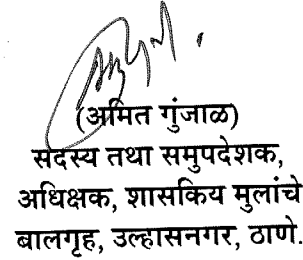 (अमित गुंजाळ)
सदस्य तथा समुपदेशक,
अधिक्षक, शासकिय मुलांचे
बालगृह, उल्हासनगर, ठाणे.